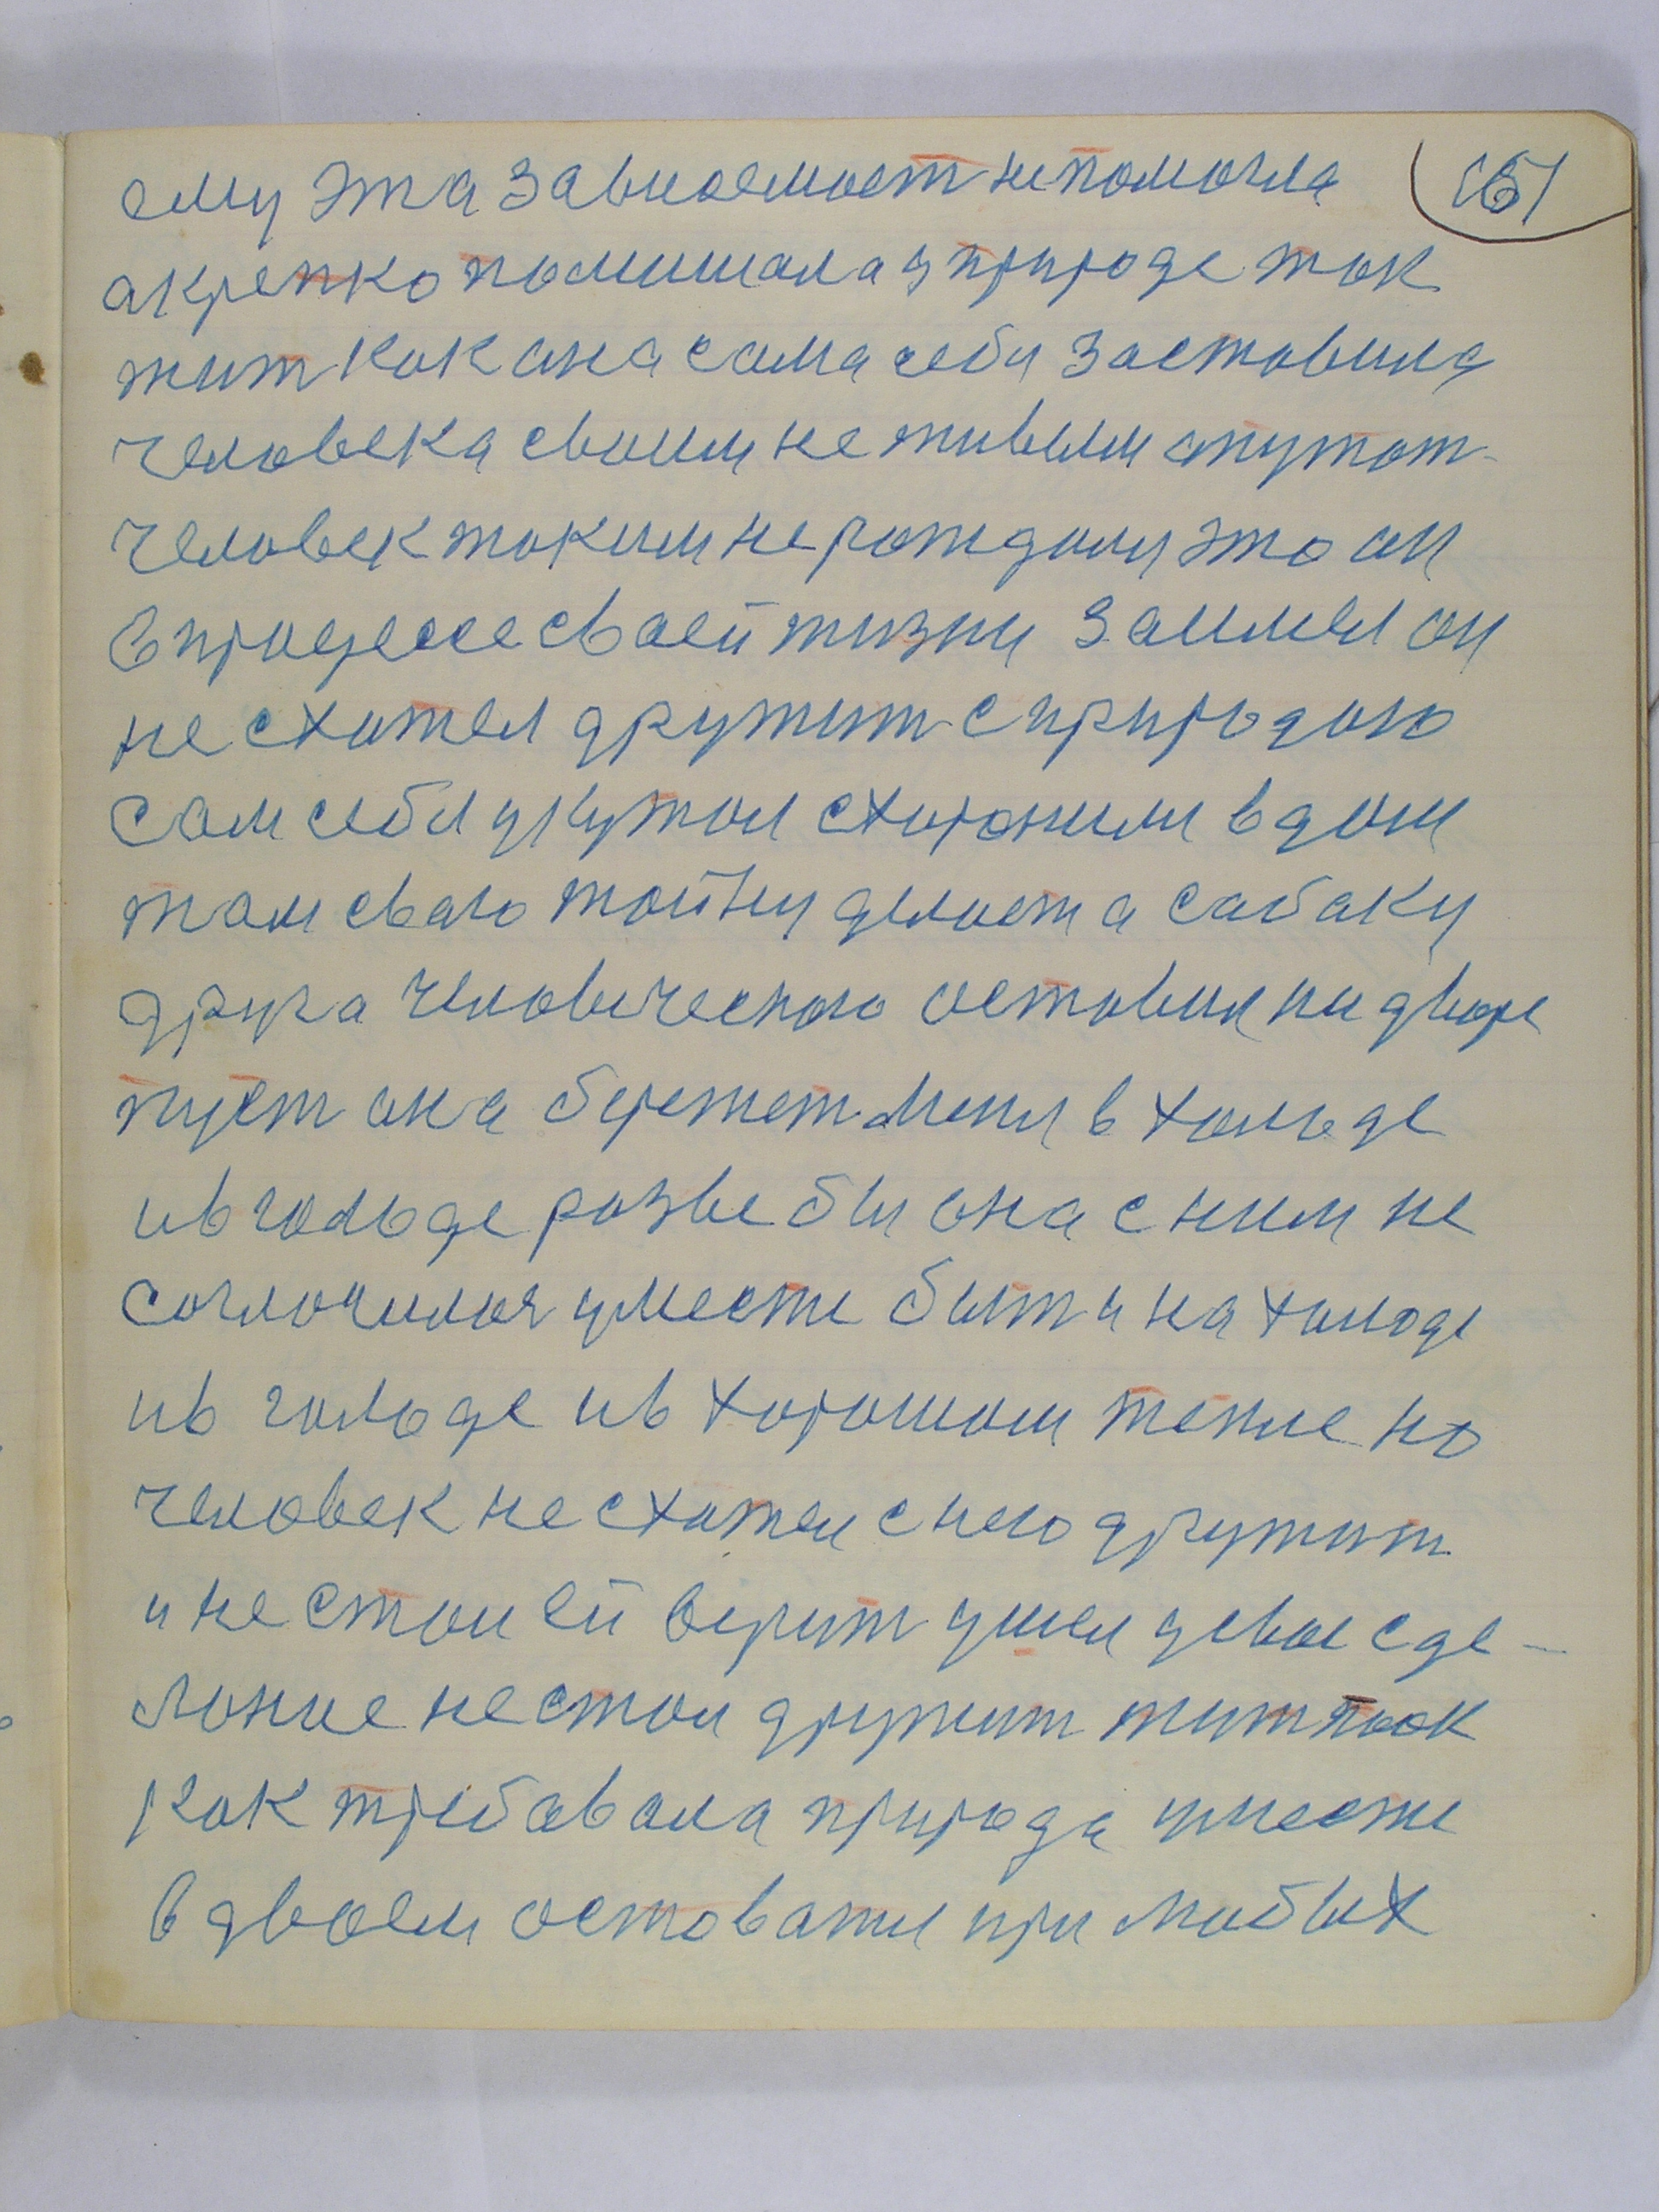 ему эта зависемост непомогла
а крепко помишала у природе так
жит как ана сама себя заставила
человека своим не живым апутат
человек таким не рождался это он
в процессе сваей жизни заимел он
не схател дружит с природою
сам себя укутал схаронили в дом
там сваю тайну делает а сабаку
друга человеческаго оставил на дворе
пуст ана бережет меня в холоде
и в голоде разве бы она с ним не
согласилася уместе быт и на холоде
и в голоде и в хорошом тепле но
человек не схател с нею дружит
и не стал ей верит ушел у свое сде-
лоние не стал дружит жит так
как требавала природа уместе
в двоем оставатся при любых